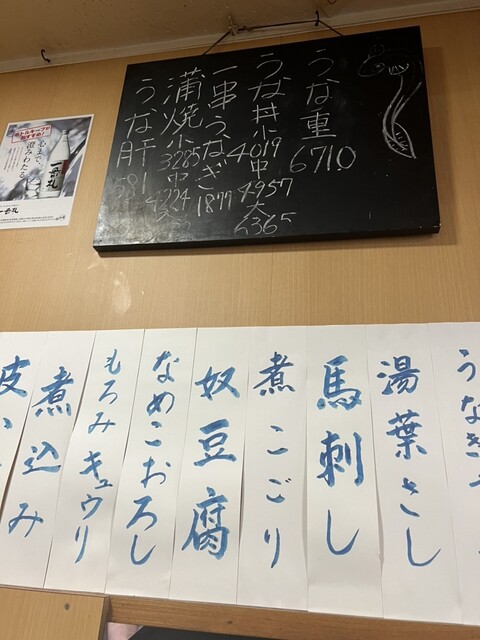 うな重 6710
うな丼 小4019 中4957 大5365
一串うなぎ 1877
蒲焼 小3285 中4224
うな肝 581
ボトルキープが
おすすめ!
心まで、
澄みわたる。
一番札
うなぎ
湯葉さし
馬刺し
煮こごり
奴豆腐
なめこおろし
もろみキュウリ
煮込み
皮